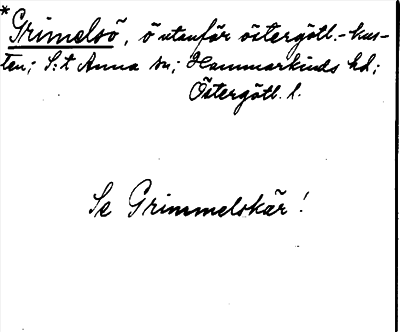 * Grimelsö, ö utanför östergötl.-kus-
ten; S:t Anna sn; Hammarkinds hd;
Östergötl. l.
Se Grimmelskär!